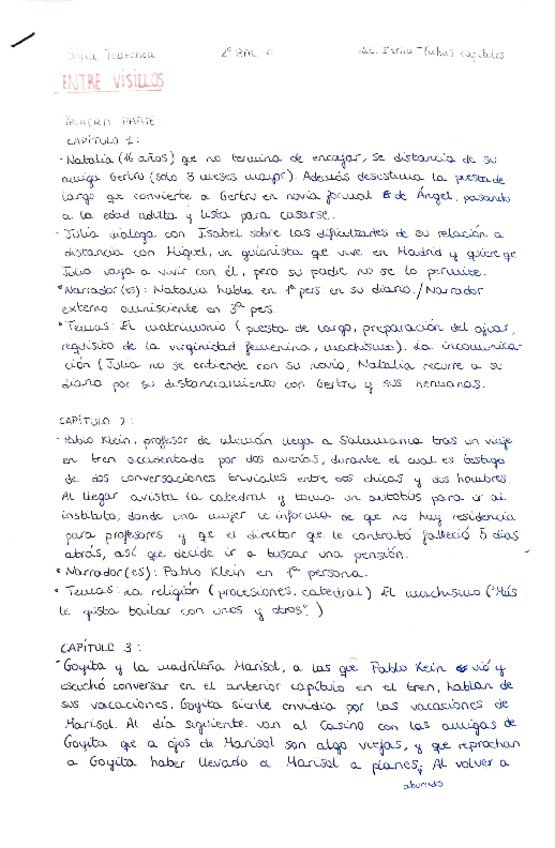 2º BAC C
ENTRE VISILLOS
PRIMERA PARTE
CAPÍTULO 1:
· Natalia (16 años) que no termina de encajar, se distancia de su
amiga Gertru (solo 3 meses mayor). Además desestima la puesta de
largo que convierte a Gertru en novia formal de Ángel, pasando
a la edad adulta y lista para casarse.
· Julia dialoga con Isabel sobre las dificultades de su relación a
distancia con Miguel, un guionista que vive en Madrid y quiere qe
Julia vaya a vivir con él, pero su padre no se lo permite.
• Narrador(es): Natalia habla en 1ª pers. en su diario. / Narrador
externo omnisciente en 3ª pers.
• Temas: El matrimonio (puesta de largo, preparación del ajuar,
requisito de la virginidad femenina, machismo). La incomunica-
ción (Julia no se entiende con su novio, Natalia recurre a su
diario por su distanciamiento con Gertru y sus hermanas.
CAPÍTULO 2:
· Pablo Klein, profesor de alemán llega a Salamanca tras un viaje
en tren accidentado por dos averías, durante el cual es testigo
de dos conversaciones triviales entre dos chicas y dos hombres
Al llegar avista la catedral y toma un autobús para ir al
instituto, donde una mujer le informa de que no hay residencia
para profesores y qe el director qe le contrató falleció 5 días
atrás, así qe decide ir a buscar una pensión.
• Narrador(es): Pablo Klein en 1ª persona.
• Temas: La religión (procesiones, catedral) El machismo ("Más
le gusta bailar con unos y otros".)
CAPÍTULO 3:
• Goyita y la madrileña Marisol, a las que Pablo Klein vió y
escuchó conversar en el anterior capítulo en el tren, hablan de
sus vacaciones. Goyita siente envidia por las vacaciones de
Marisol. Al día siguiente van al Casino con las amigas de
Goyita que a ojos de Marisol son algo viejas, y que reprochan
a Goyita haber llevado a Marisol a planes; Al volver a
aburridos